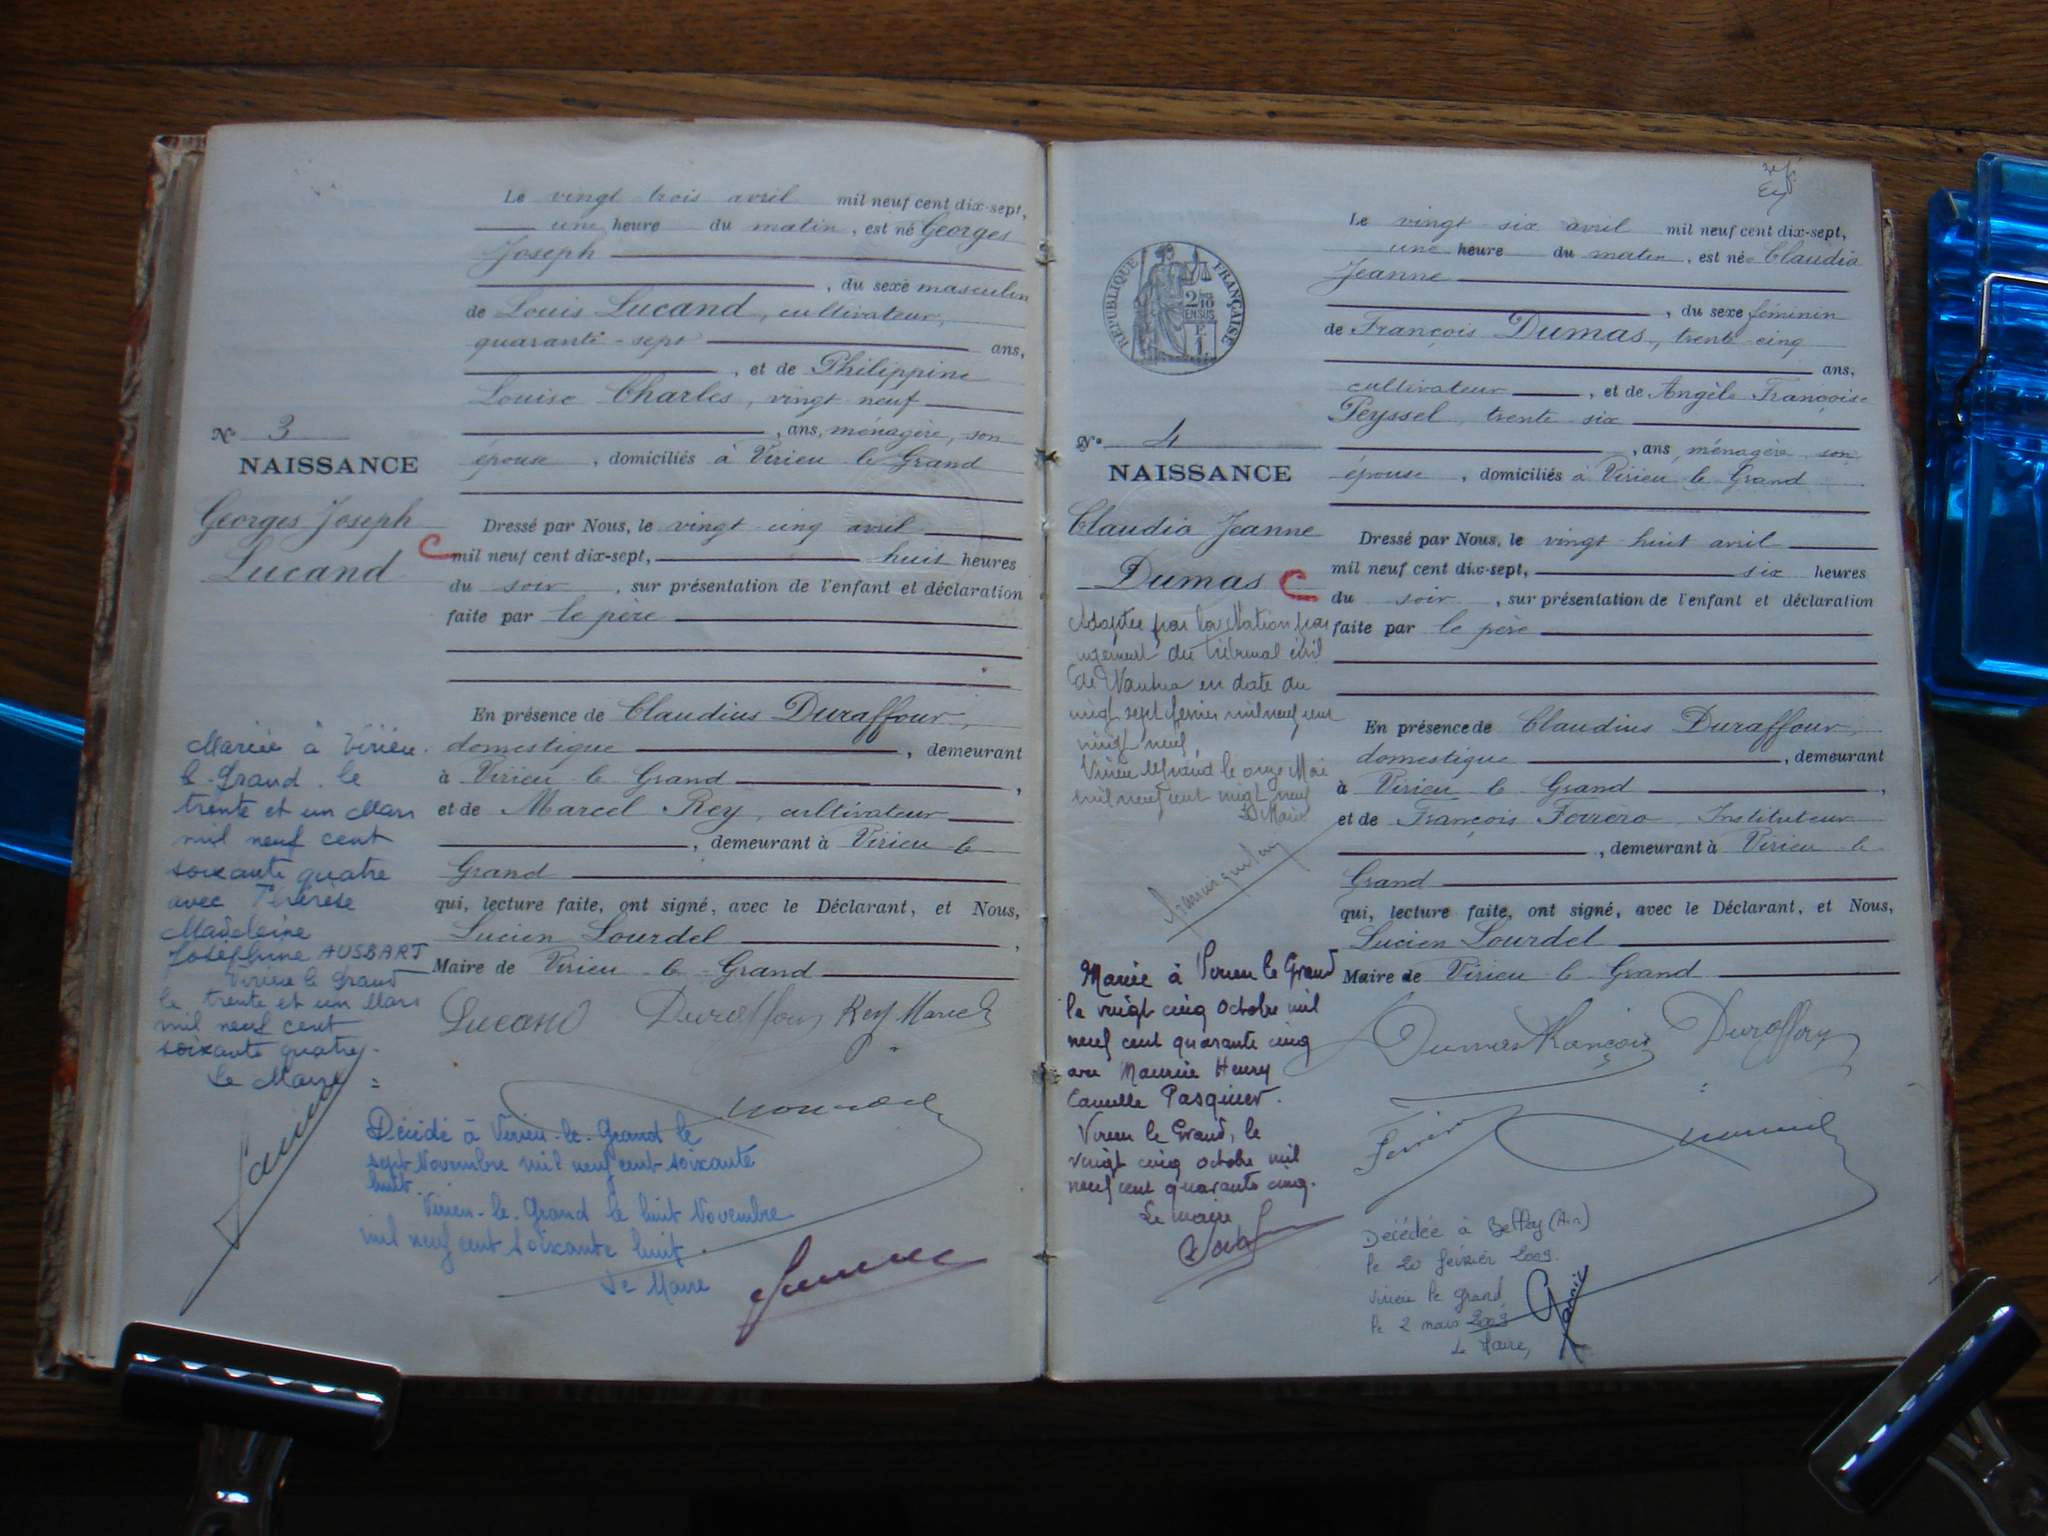 Le vingt trois avril mil neuf cent dix-sept,
une heure du matin, est né Georges
Joseph
, du sexe masculin
de Louis Lucand, cultivateur,
quarante-sept ans,
, et de Philippine
Louise Charles, vingt neuf
, ans, ménagère, son
épouse, domiciliés à Virieu le Grand
N° 3
NAISSANCE
Georges Joseph
Lucand
Dressé par Nous, le vingt cinq avril
mil neuf cent dix-sept, huit heures
du soir, sur présentation de l'enfant et déclaration
faite par le père
En présence de Claudius Duraffour,
domestique, demeurant
à Virieu le Grand,
et de Marcel Rey, cultivateur
, demeurant à Virieu le
Grand
qui, lecture faite, ont signé, avec le Déclarant, et Nous,
Lucien Lourdel,
Maire de Virieu le Grand
Lucand Duraffour Rey Marcel
Mariée à Virieu
le Grand le
trente et un Mars
mil neuf cent
soixante quatre
avec Thérèse
Madeleine
Joséphine AUSBART
Virieu le Grand
le trente et un Mars
mil neuf cent
soixante quatre.
Le Maire
Décédé à Virieu-le-Grand le
sept Novembre mil neuf cent soixante
huit.
Virieu-le-Grand le huit Novembre
mil neuf cent soixante huit.
Le Maire
RÉPUBLIQUE FRANÇAISE
2/10
EN SUS
F.
1
Le vingt six avril mil neuf cent dix-sept,
une heure du matin, est née Claudia
Jeanne
, du sexe féminin
de François Dumas, trente cinq
ans,
cultivateur, et de Angèle Françoise
Peyssel, trente six
, ans, ménagère, son
épouse, domiciliés à Virieu le Grand
N° 4
NAISSANCE
Claudia Jeanne
Dumas
Dressé par Nous, le vingt huit avril
mil neuf cent dix-sept, six heures
du soir, sur présentation de l'enfant et déclaration
faite par le père
En présence de Claudius Duraffour,
domestique, demeurant
à Virieu le Grand,
et de François Ferrero, Instituteur
, demeurant à Virieu le
Grand
qui, lecture faite, ont signé, avec le Déclarant, et Nous,
Lucien Lourdel
Maire de Virieu le Grand
Dumas François Duraffour
Ferrero
Adoptée par la Nation par
jugement du tribunal civil
de Nantua en date du
vingt sept février mil neuf cent
vingt neuf,
Virieu le Grand le onze Mai
mil neuf cent vingt neuf
Le Maire
Mariée à Virieu le Grand
le vingt cinq octobre mil
neuf cent quarante cinq
avec Maurice Henry
Camille Pasquier.
Virieu le Grand, le
vingt cinq octobre mil
neuf cent quarante cinq.
Le maire
Décédée à Belley (Ain)
le 20 février 2009.
Virieu le grand
le 2 mars 2009
Le Maire,